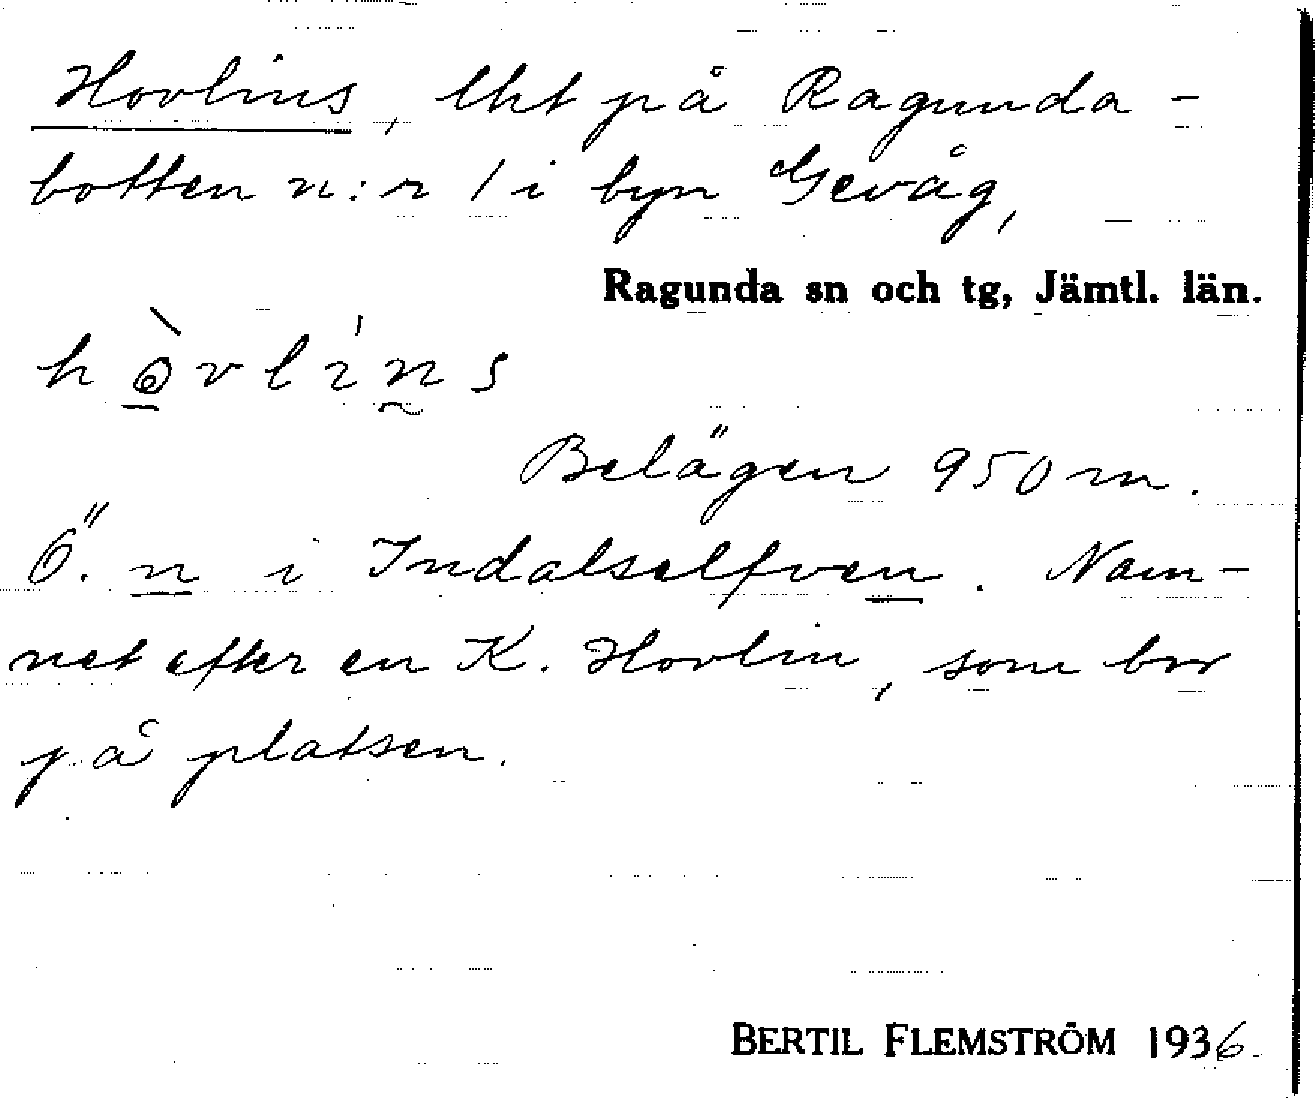 Hovlins, lht på Ragunda-
botten n:r 1 i byn Gevåg,
Ragunda sn och tg, Jämtl. län.
hòvlíns
Belägen 950 m.
Ö. n i Indalselfven. Nam-
net efter en K. Hovlin, som bor
på platsen.
BERTIL FLEMSTRÖM 1936